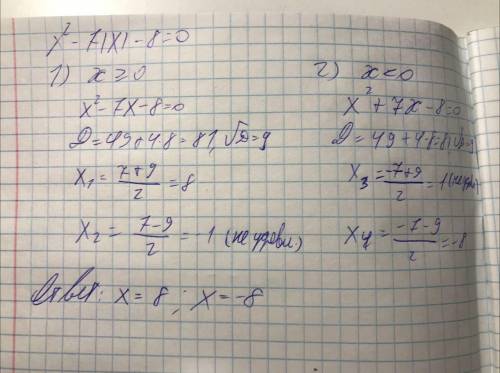 x² - 7|x| - 8 = 0
1) x ≥ 0
x² - 7x - 8 = 0
D = 49 + 4·8 = 81, √D = 9
x₁ = (7+9)/2 = 8
x₂ = (7-9)/2 = -1 (не удовл.)
2) x < 0
x² + 7x - 8 = 0
D = 49 + 4·8 = 81, √D = 9
x₃ = (-7+9)/2 = 1 (не удовл)
x₄ = (-7-9)/2 = -8
Ответ: x = 8; x = -8